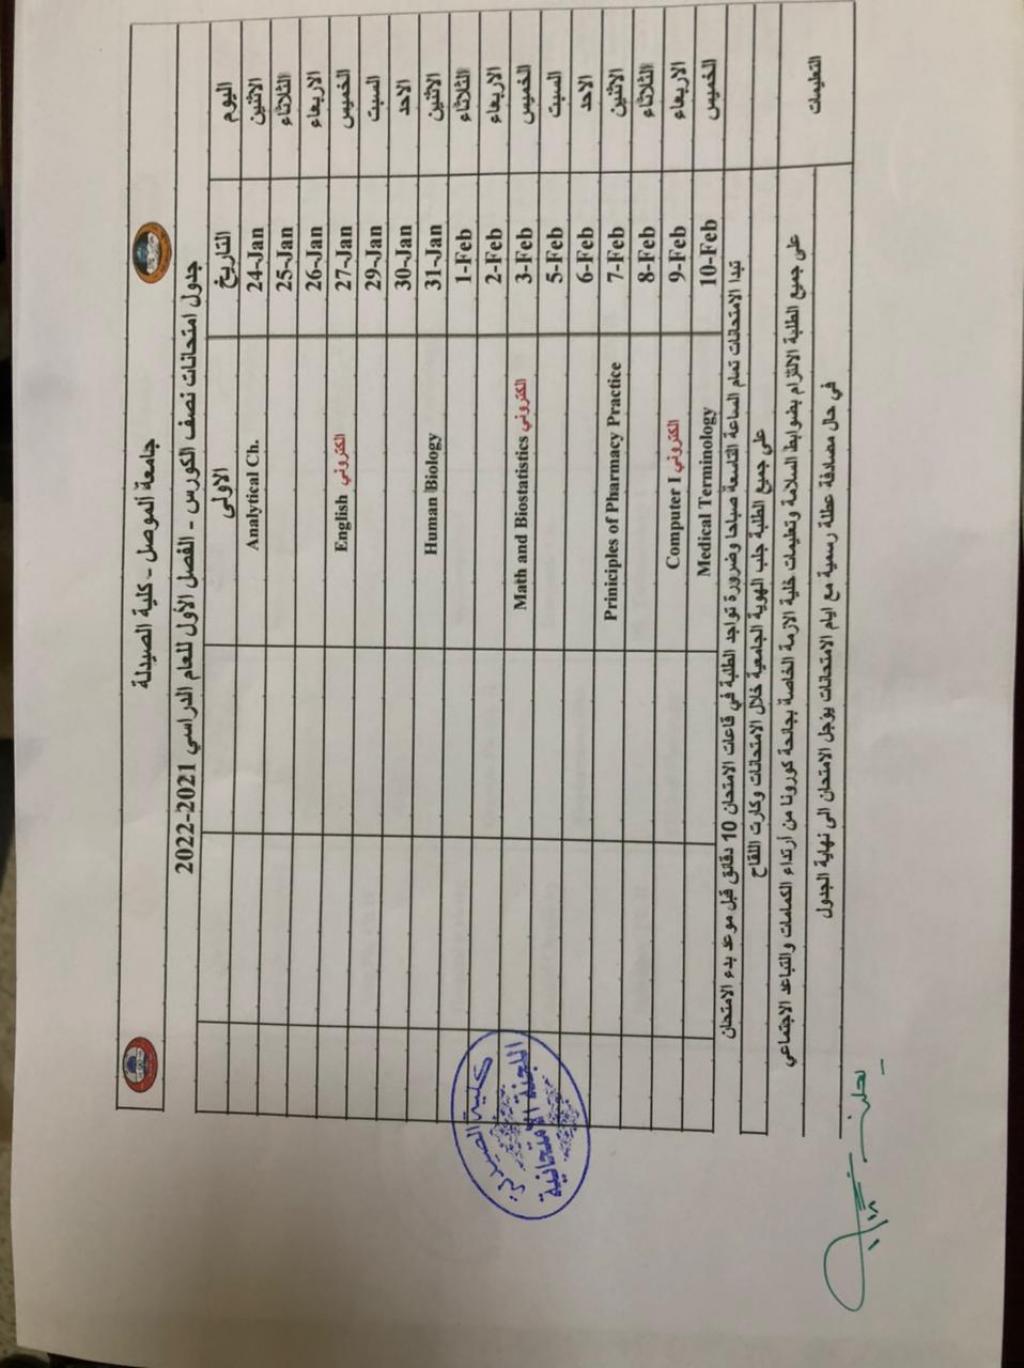 جامعة الموصل - كلية الصيدلة
جدول امتحانات نصف الكورس - الفصل الأول للعام الدراسي 2021-2022
اليوم التاريخ الاولى
الاثنين 24-Jan Analytical Ch.
الثلاثاء 25-Jan
الاربعاء 26-Jan
الخميس 27-Jan English الكتروني
السبت 29-Jan
الاحد 30-Jan
الاثنين 31-Jan Human Biology
الثلاثاء 1-Feb
الاربعاء 2-Feb
الخميس 3-Feb Math and Biostatistics الكتروني
السبت 5-Feb
الاحد 6-Feb
الاثنين 7-Feb Priniciples of Pharmacy Practice
الثلاثاء 8-Feb
الاربعاء 9-Feb Computer I الكتروني
الخميس 10-Feb Medical Terminology
تبدا الامتحانات تمام الساعة التاسعة صباحا وضرورة تواجد الطلبة في قاعات الامتحان 10 دقائق قبل موعد بدء الامتحان
على جميع الطلبة جلب الهوية الجامعية خلال الامتحانات وكارت اللقاح
التعليمات
على جميع الطلبة الالتزام بضوابط السلامة وتعليمات خلية الازمة الخاصة بجائحة كورونا من ارتداء الكمامات والتباعد الاجتماعي
في حال مصادفة عطلة رسمية مع ايام الامتحانات يؤجل الامتحان الى نهاية الجدول
كلية الصيدلة
اللجنة الامتحانية
١/١٨